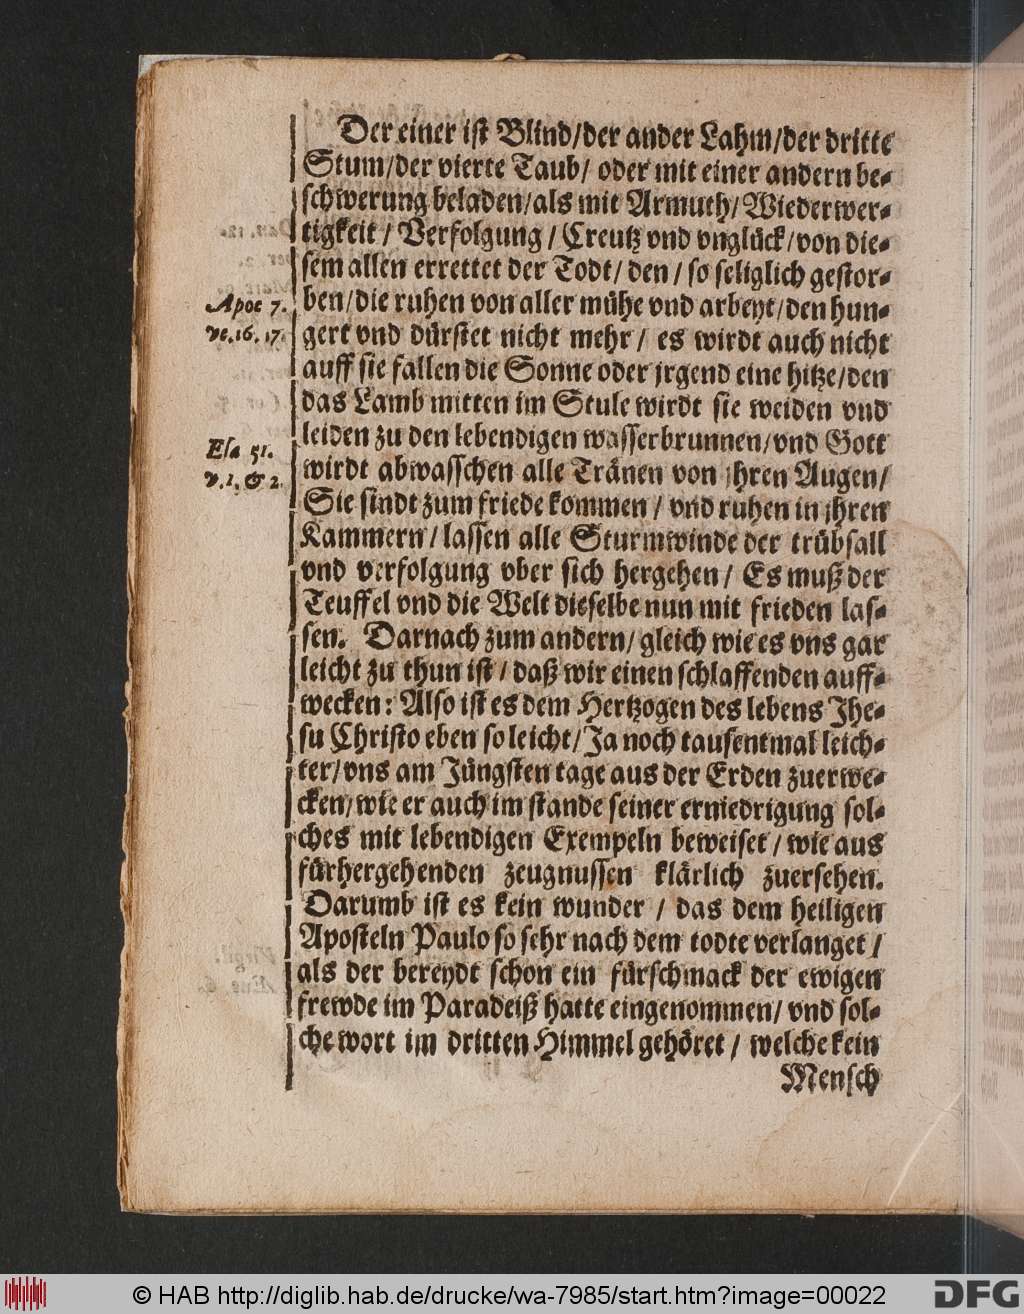 Der einer ist Blind/der ander Lahm/der dritte
Stum/der vierte Taub/ oder mit einer andern be-
schwerung beladen/als mit Armuth/Wiederwer-
tigkeit/ Verfolgung/ Creutz vnd vnglück/von die-
sem allen errettet der Todt/ den/ so seliglich gestor-
Apoc 7. ben/die ruhen von aller mühe vnd arbeyt/den hun-
ve.16. 17. gert vnd dürstet nicht mehr/ es wirdt auch nicht
auff sie fallen die Sonne oder jrgend eine hitze/den
das Lamb mitten im Stule wirdt sie weiden vnd
Esa 51. leiden zu den lebendigen wasserbrunnen/vnd Gott
v.1. & 2. wirdt abwasschen alle Tränen von jhren Augen/
Sie sindt zum friede kommen/ vnd ruhen in jhren
Kammern/ lassen alle Sturmwinde der trübsall
vnd verfolgung vber sich hergehen/ Es muß der
Teuffel vnd die Welt dieselbe nun mit frieden las-
sen. Darnach zum andern/ gleich wie es vns gar
leicht zu thun ist/ daß wir einen schlaffenden auff-
wecken: Also ist es dem Hertzogen des lebens Jhe-
su Christo eben so leicht/ Ja noch tausentmal leich-
ter/ vns am Jüngsten tage aus der Erden zuerwe-
cken/ wie er auch im stande seiner erniedrigung sol-
ches mit lebendigen Exempeln beweiset/ wie aus
fürhergehenden zeugnussen klärlich zuersehen.
Darumb ist es kein wunder/ das dem heiligen
Aposteln Paulo so sehr nach dem todte verlanget/
als der bereydt schon ein fürschmack der ewigen
frewde im Paradeiß hatte eingenommen/ vnd sol-
che wort im dritten Himmel gehöret/ welche kein
Mensch
© HAB http://diglib.hab.de/drucke/wa-7985/start.htm?image=00022
DFG